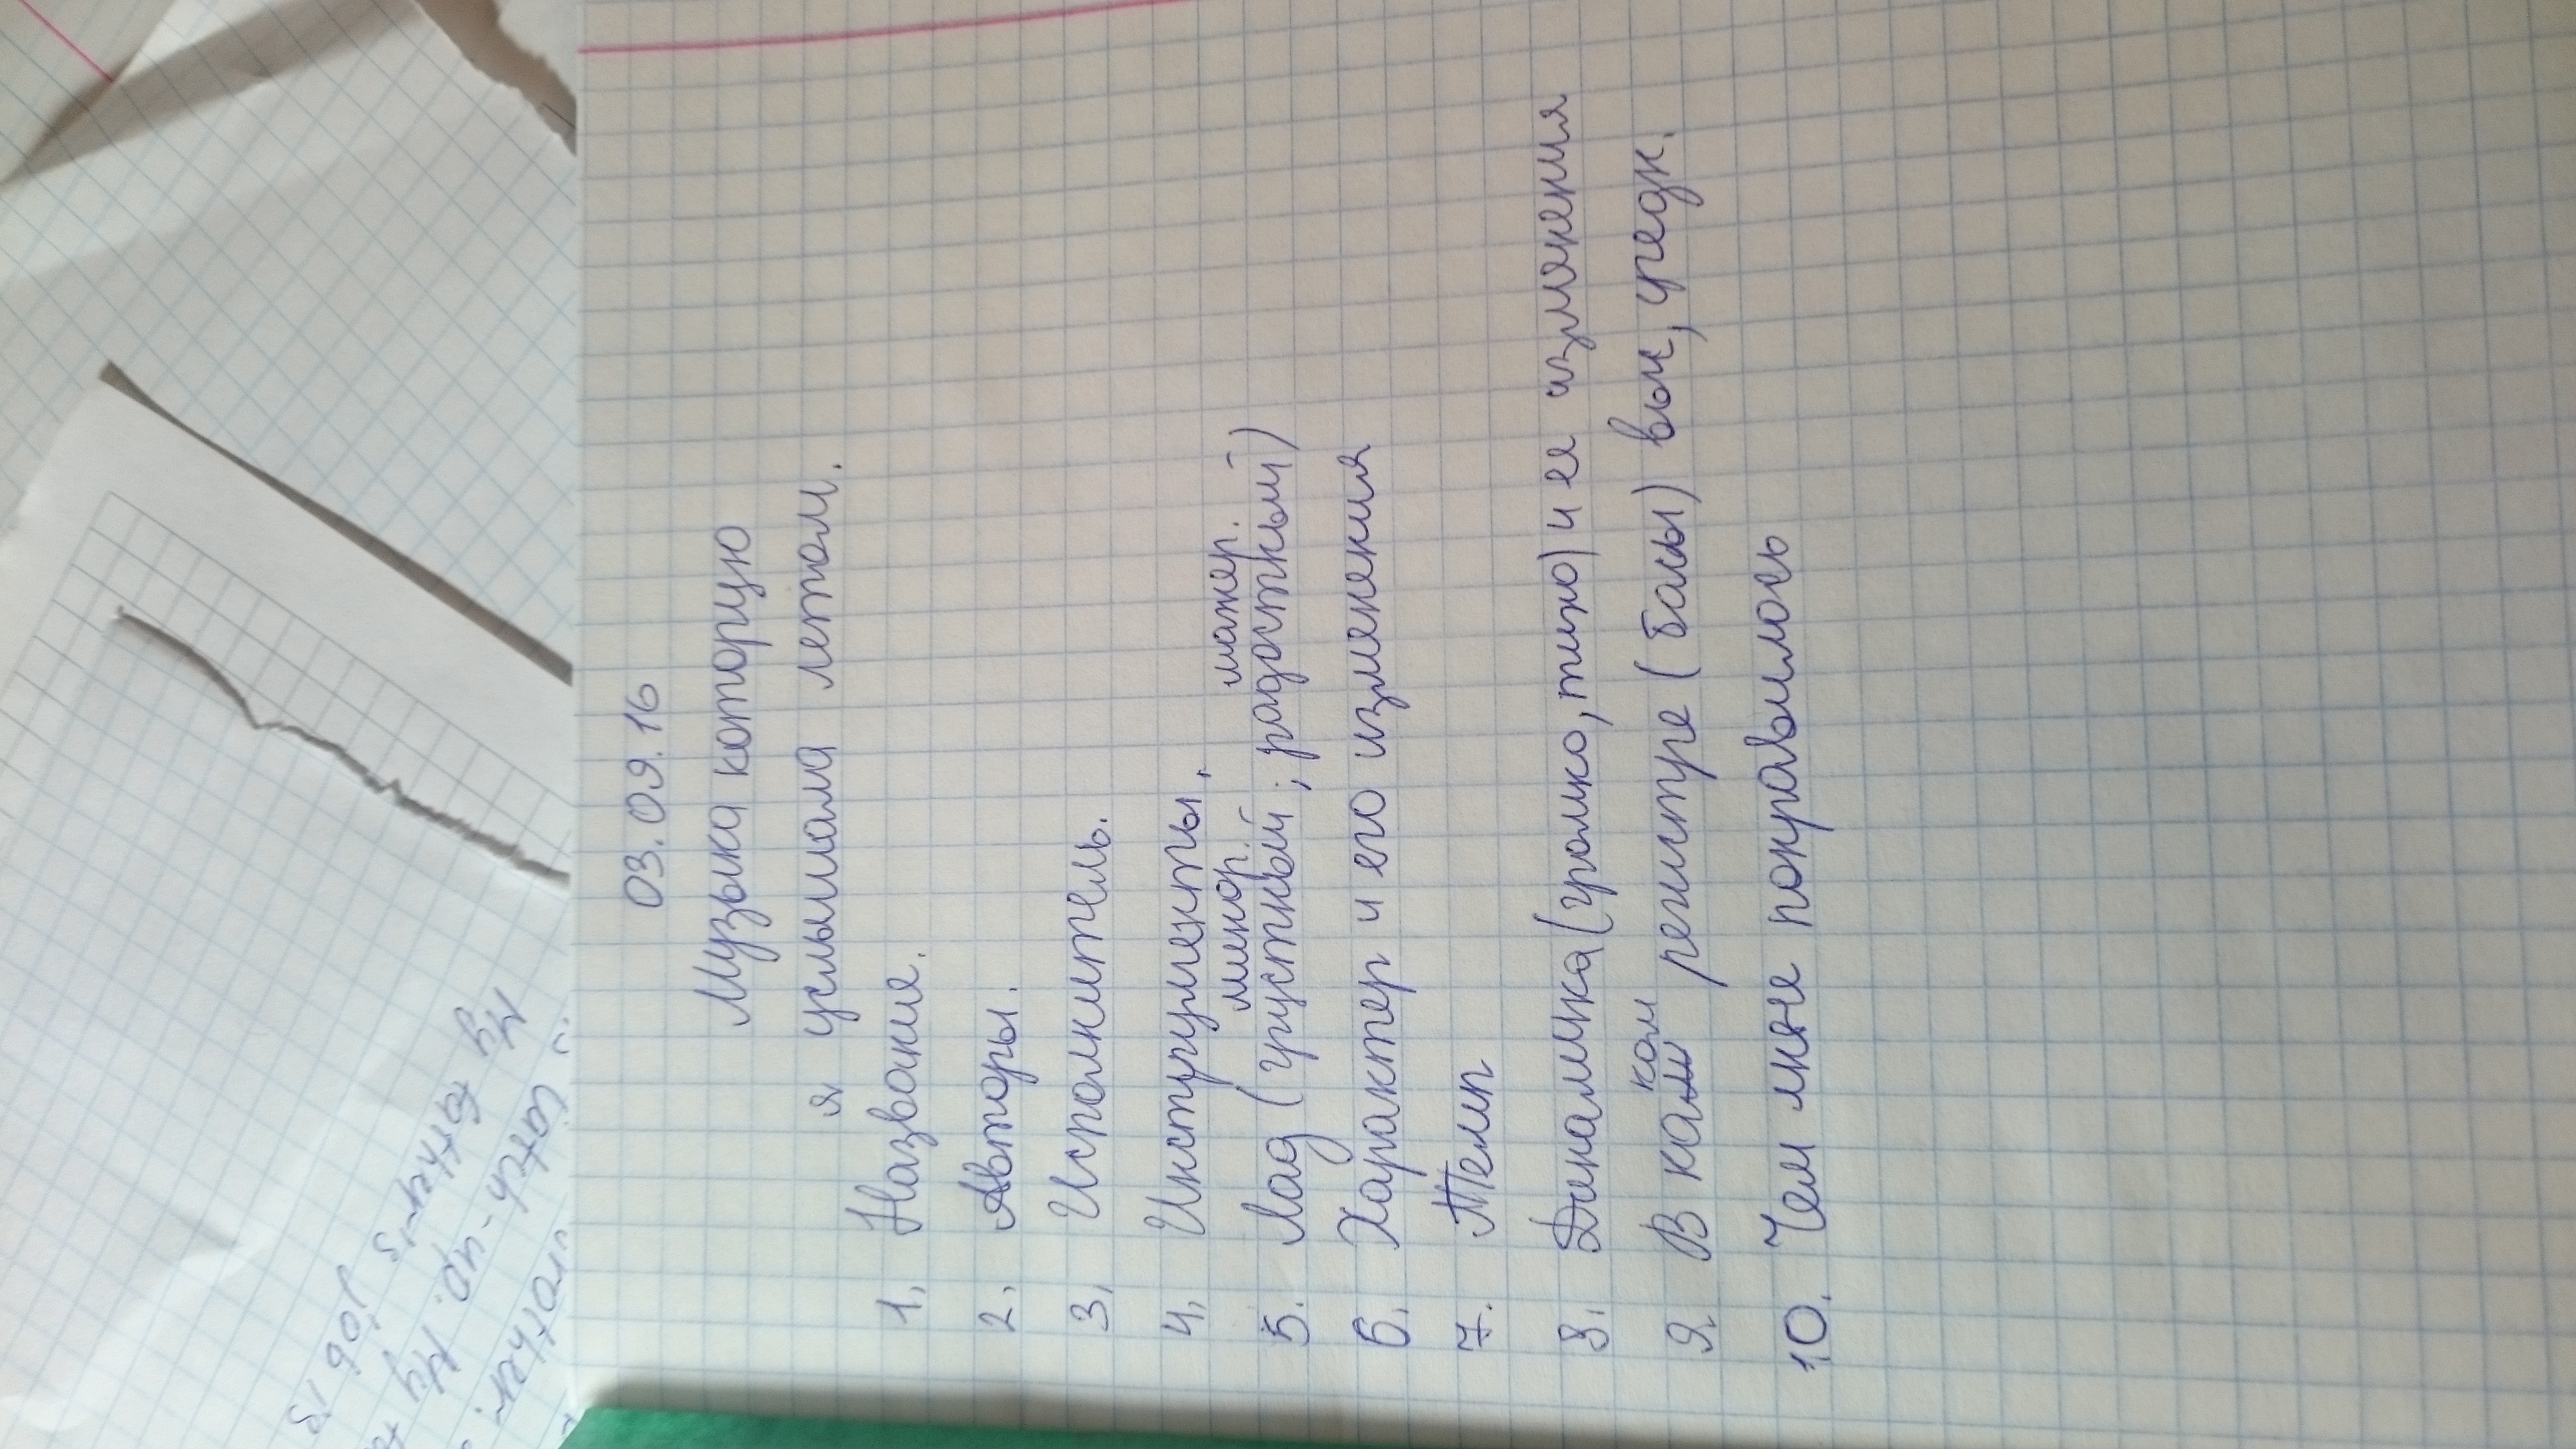 03.09.16
Музыка которую
я услышала летом.
1. Название.
2. Авторы.
3. Исполнитель.
4. Инструменты.
минор. мажер.
5. Лад (грустный; радостный)
6. Характер и его изменения
7. Темп
8. Динамика (громко, тихо) и ее изменения
ком
9. В регистре (басы) вым, средн.
10. Чем мне понравилось
My
job is
My